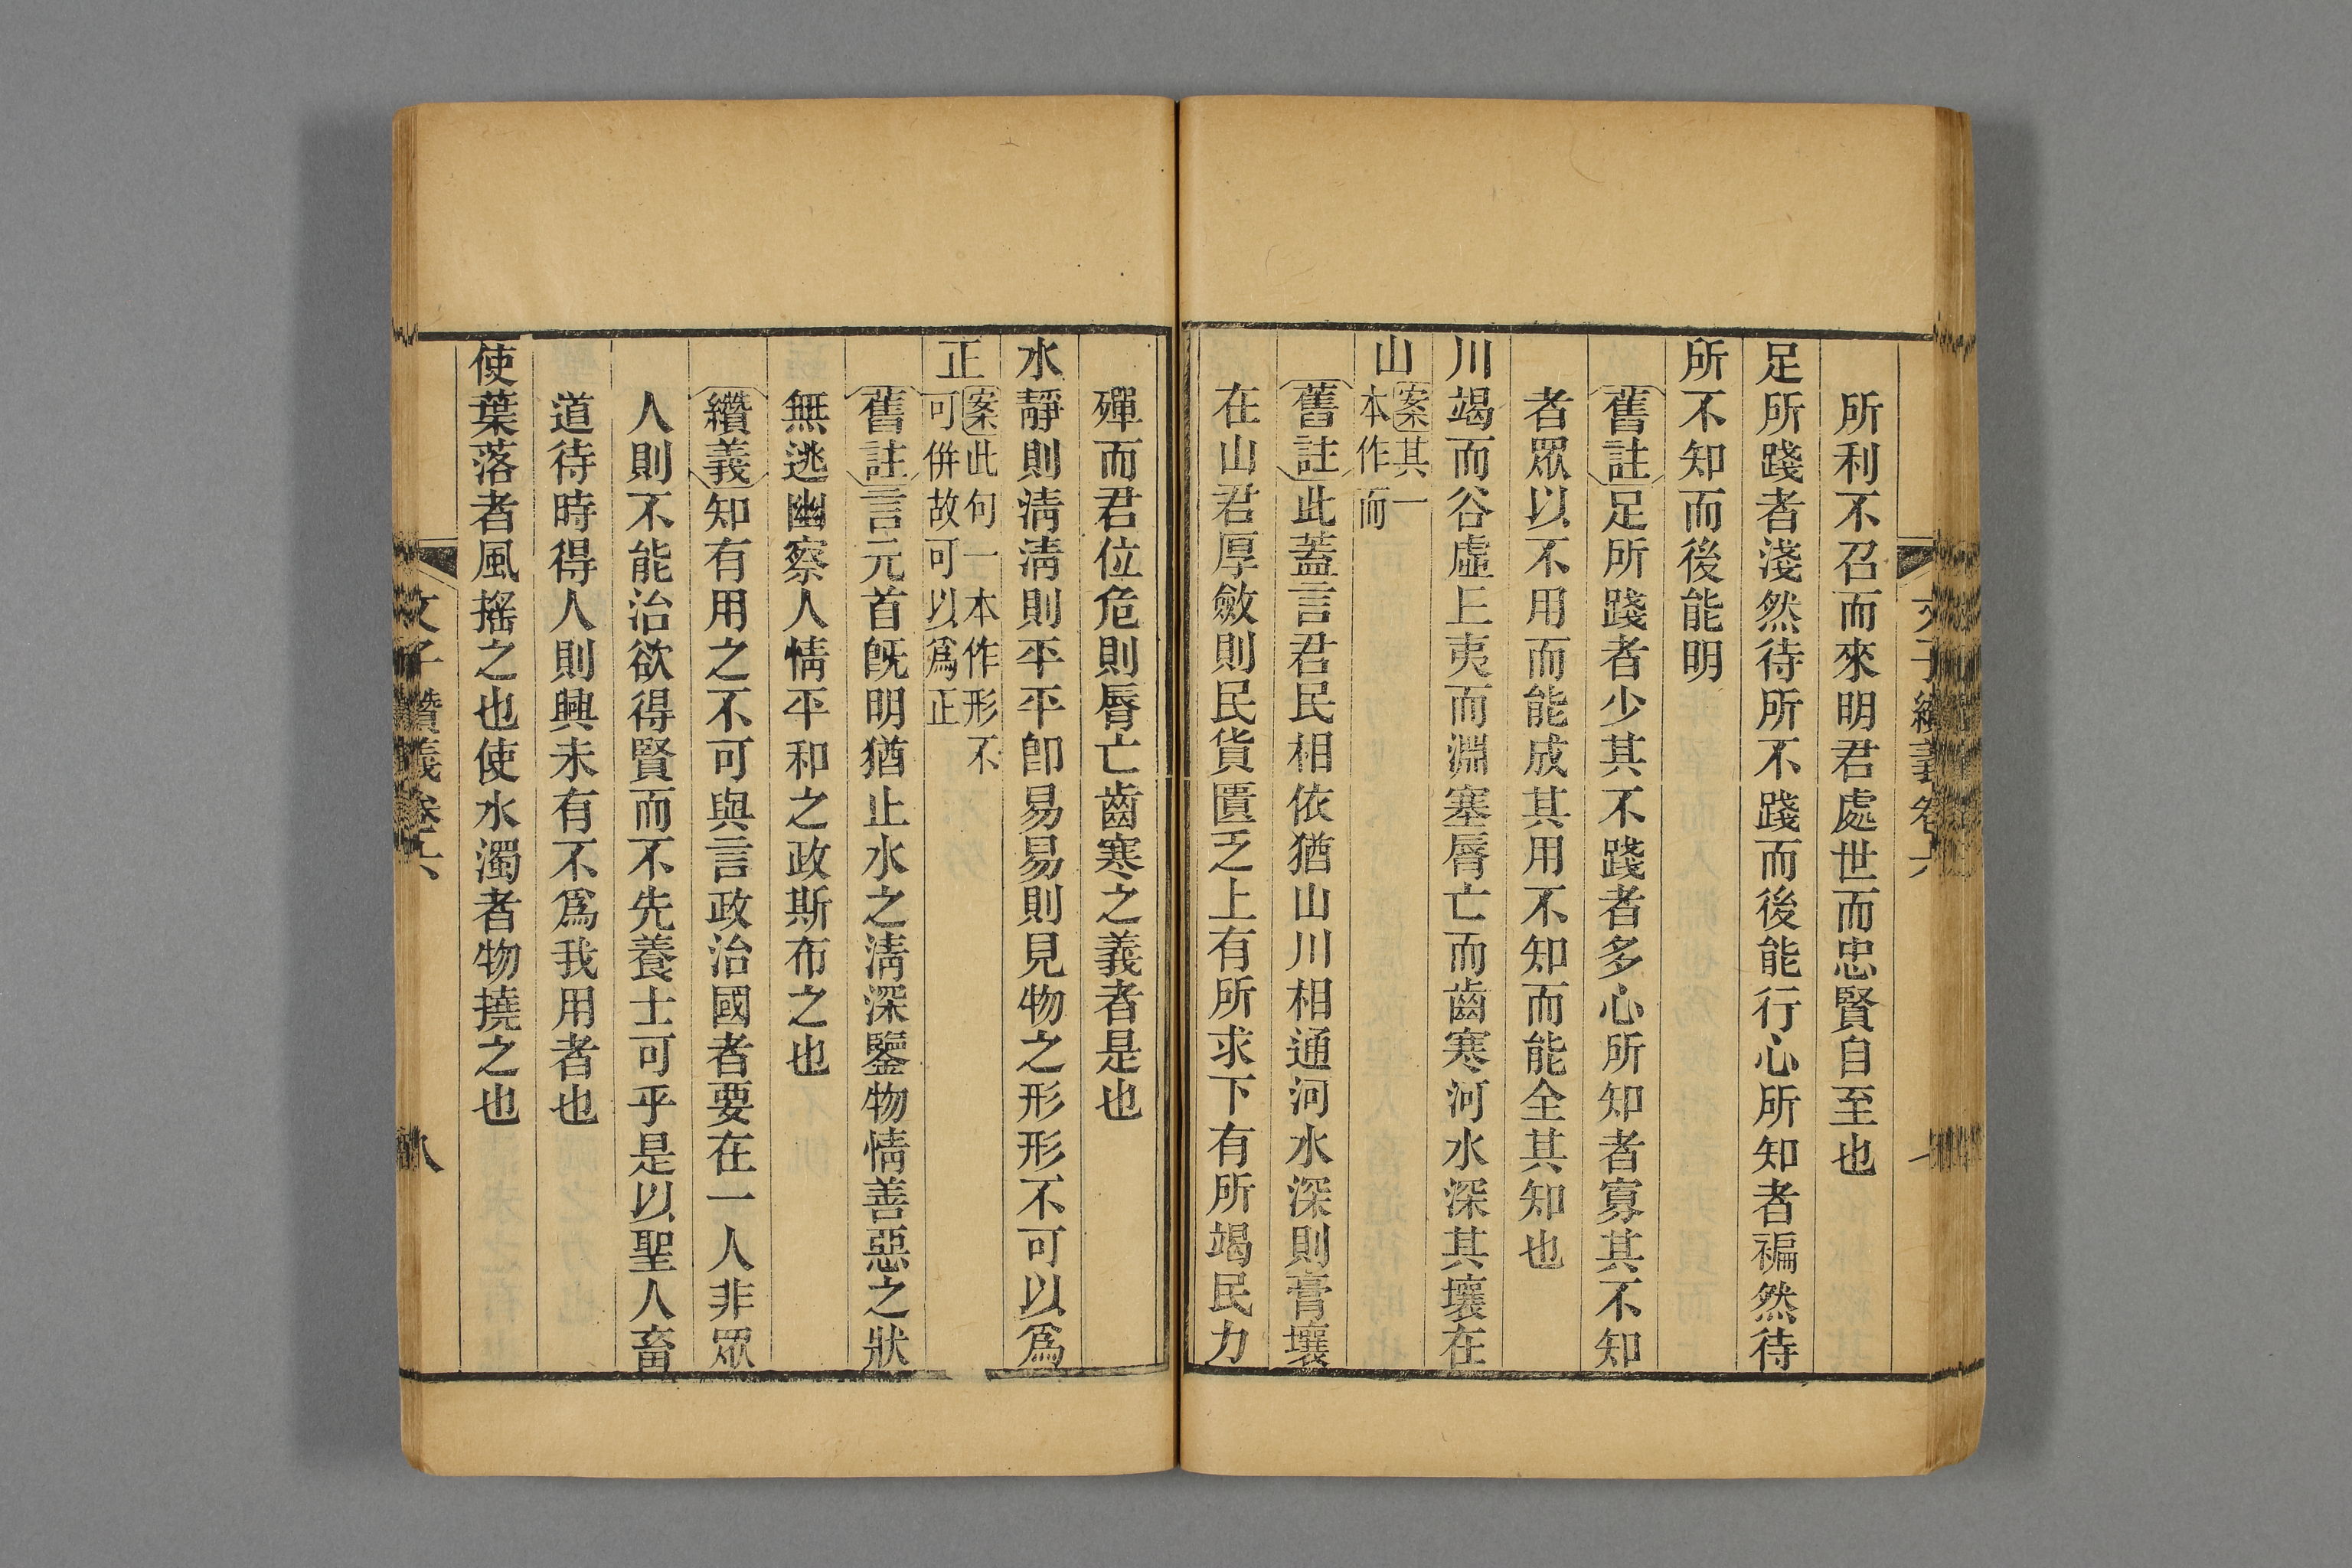 所利不召而來明君處世而忠賢自至也
足所踐者淺然待所不踐而後能行心所知者褊然待
所不知而後能明
舊註足所踐者少其不踐者多心所知者寡其不知
者眾以不用而能成其用不知而能全其知也
川竭而谷虛上夷而淵塞脣亡而齒寒河水深其壤在
山案其一
本作而
舊註此蓋言君民相依猶山川相通河水深則膏壤
在山君厚斂則民貨匱乏上有所求下有所竭民力
殫而君位危則脣亡齒寒之義者是也
水靜則淸淸則平平卽易易則見物之形形不可以爲
正案此句一本作形不
可併故可以爲正
舊註言元首旣明猶止水之淸深鑒物情善惡之狀
無逃幽察人情平和之政斯布之也
纘義知有用之不可與言政治國者要在一人非眾
人則不能治欲得賢而不先養士可乎是以聖人畜
道待時得人則興未有不爲我用者也
使葉落者風搖之也使水濁者物撓之也
文子纘義卷六
八